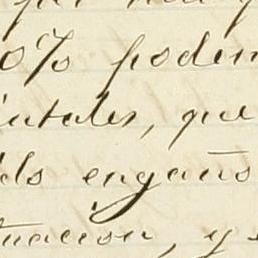 0% podem
utales, que
ds engaños
uacion, y